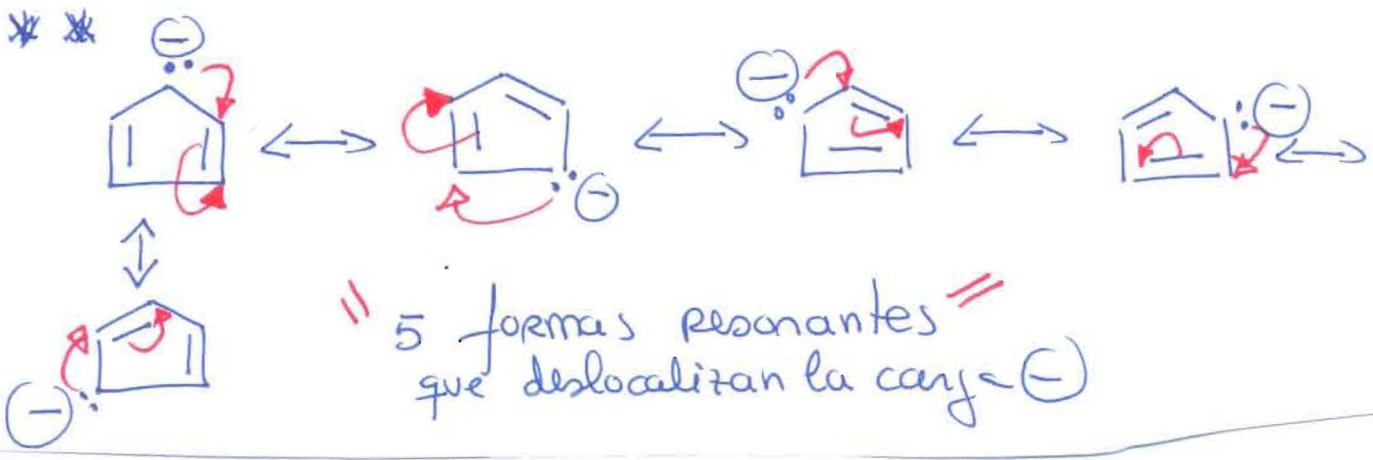 ** 
" 5 formas resonantes "
que deslocalizan la carga ⊖